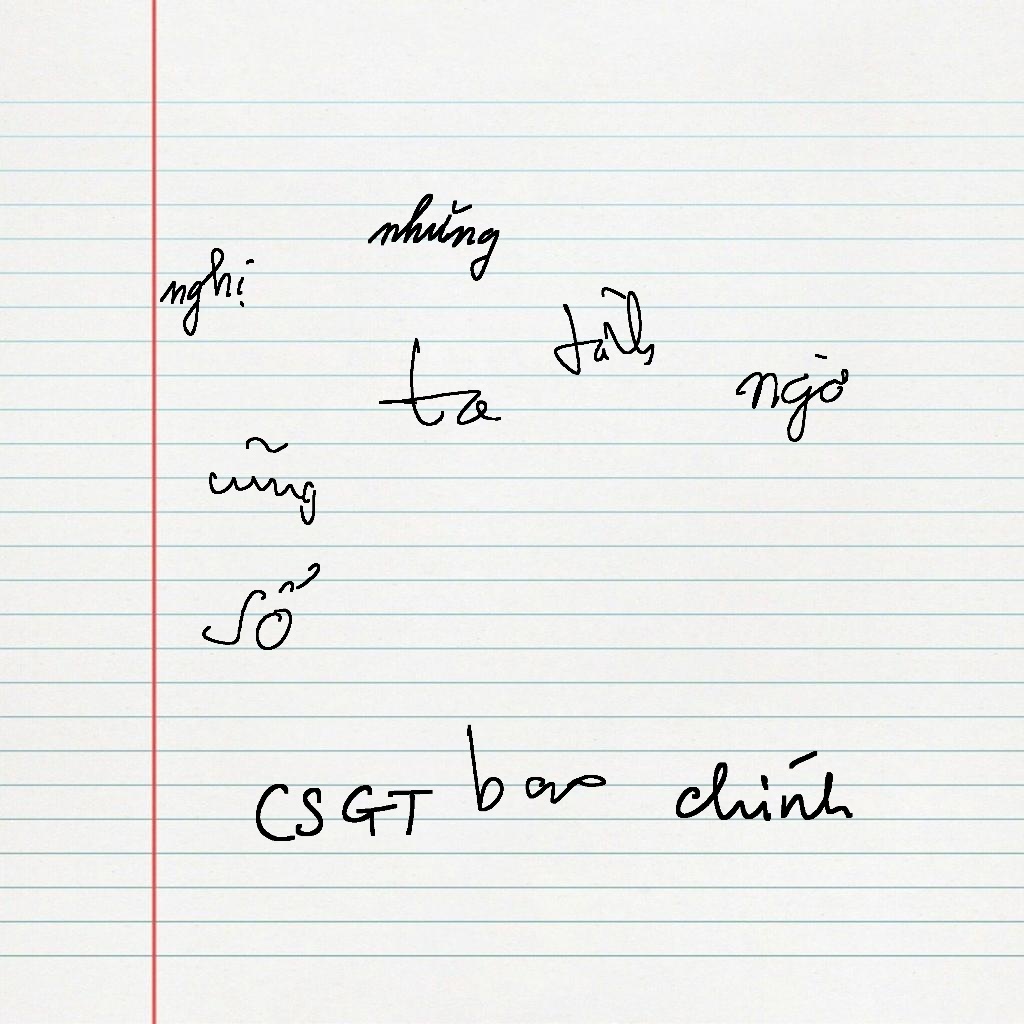 những
nghị
tình
ta
ngờ
cũng
số
CSGT bao chính